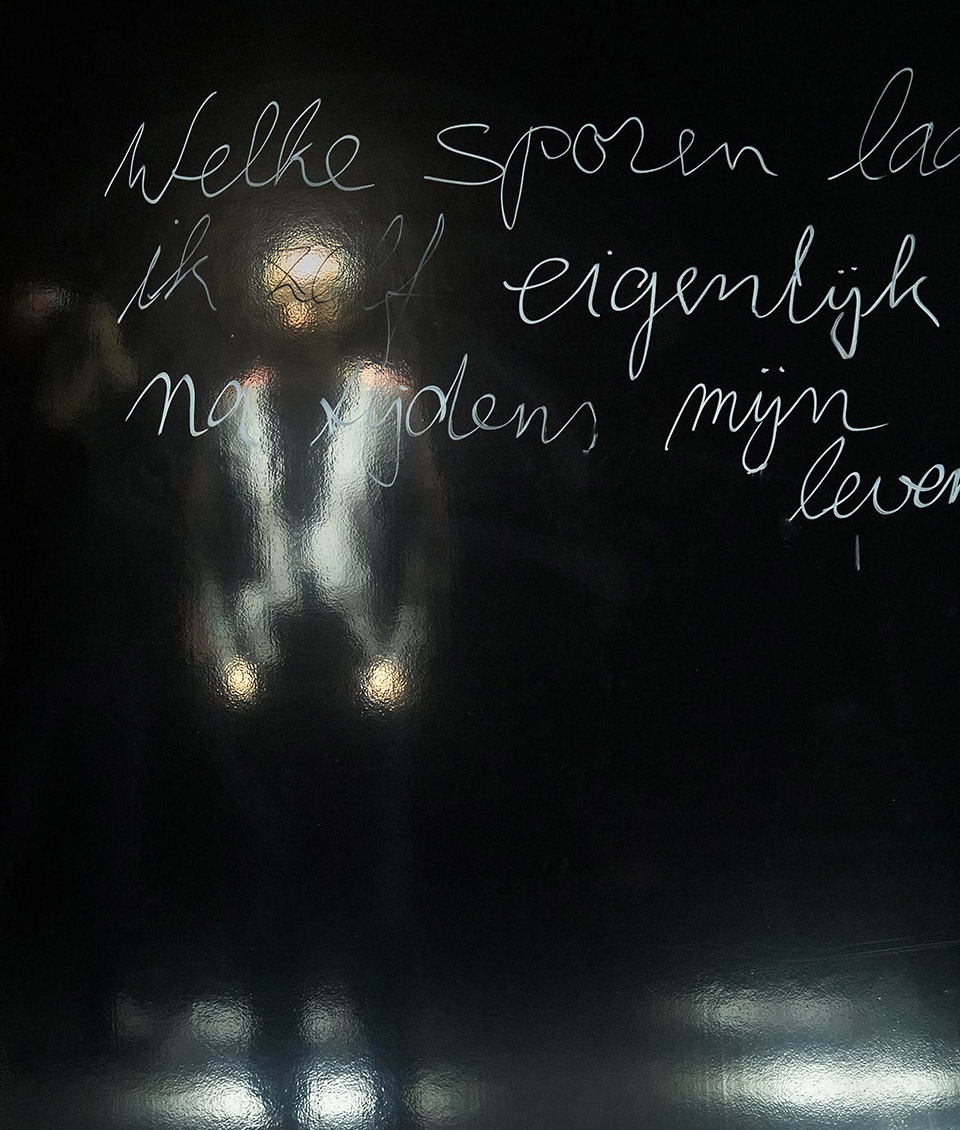 Welke sporen laa
ik zelf eigenlijk
na tijdens mijn
leven